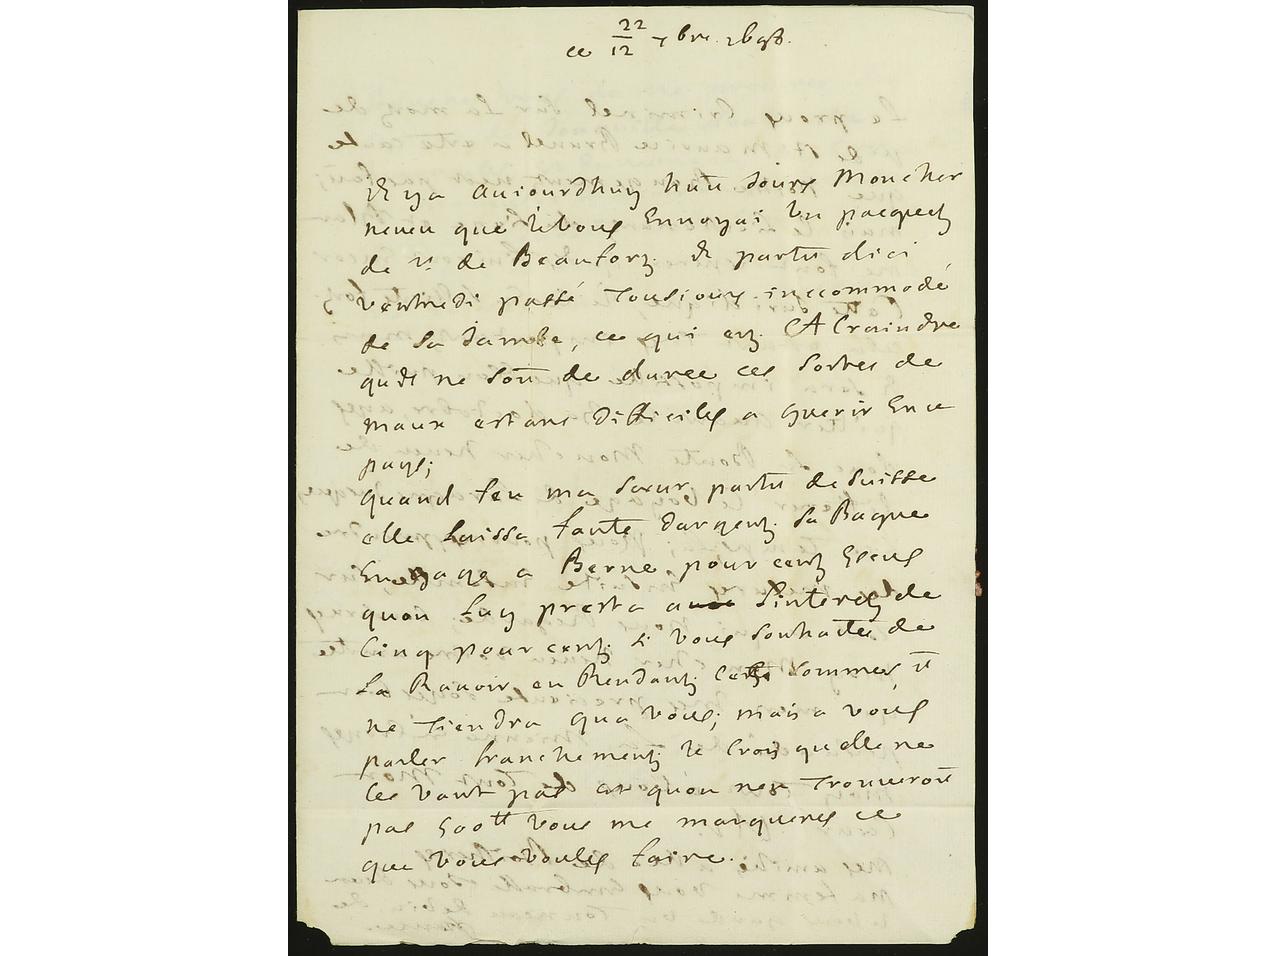 ce 22/12 7bre. 1698.
Il y a aujourdhuy huit jours Mon cher
neveu que je vous Envoyai Un pacquet
de Mr. de Beaufort. Il partit dici
ventredi passé Tousjours incommodé
de sa Jambe, ce qui est. A Craindre
quil ne soit de duree ces sortes de
maux estans difficiles a guerir En ce
pays;
quand feu ma soeur partit de Suisse
elle laissa faute dargent. sa Bague
Engagé a Berne pour cent Escus
quon luy presta a l'interest de
Cinq pour cent. si vous souhaités de
La Ravoir en Rendant. cette somme, il
ne Tiendra qua vous; mais a vous
parler franchement je Crois quelle ne
Les vaut pas et quon nen Trouveroit
pas 500tt vous me marqueres ce
que vous voules faire.